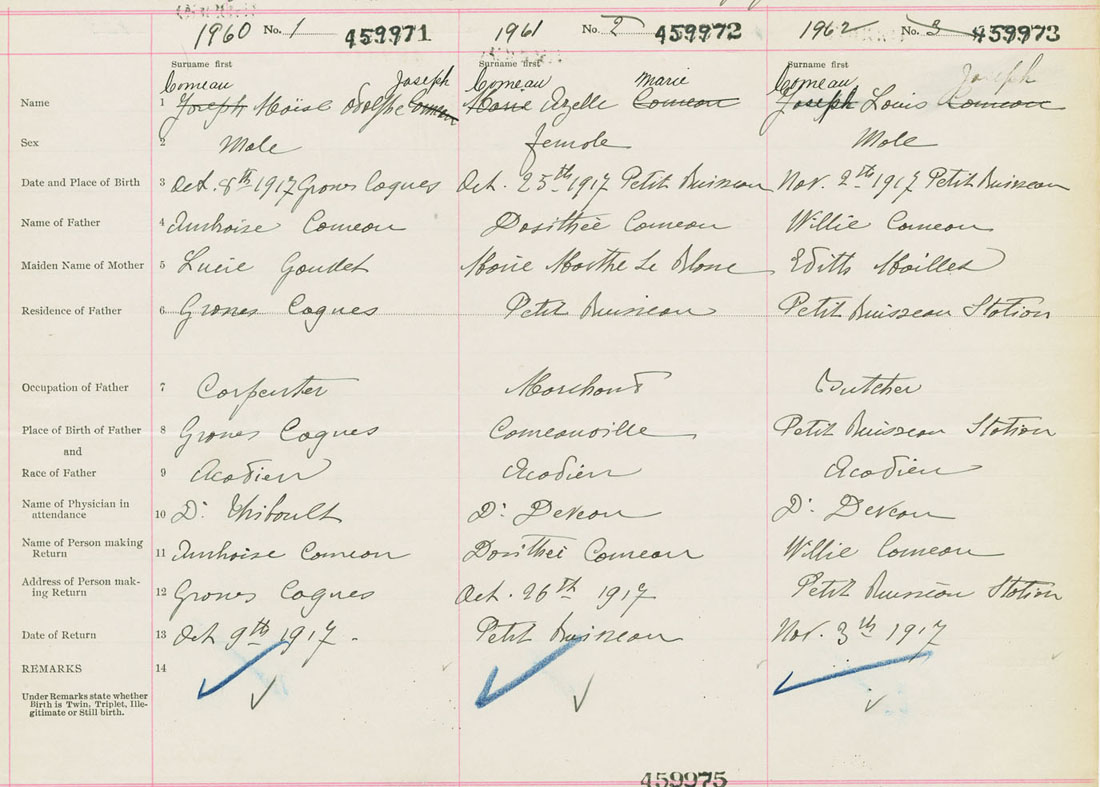 1960 No. 1 459971 1961 No. 2 459972 1962 No. 3 459973
Surname first Surname first Surname first
Comeau Joseph Comeau Marie Comeau Joseph
Name 1 Joseph Moïse Adolphe Comeau Marie Azelle Comeau Joseph Louis Comeau
Sex 2 Male female Male
Date and Place of Birth 3 Oct. 8th 1917 Grosses Coques Oct. 25th 1917 Petit Ruisseau Nov. 2th 1917 Petit Ruisseau
Name of Father 4 Ambroise Comeau Dosithée Comeau Willie Comeau
Maiden Name of Mother 5 Lucie Gaudet Marie Marthe Le Blanc Edith Maillet
Residence of Father 6 Grosses Coques Petit Ruisseau Petit Ruisseau Station
Occupation of Father 7 Carpenter Marchant Butcher
Place of Birth of Father 8 Grosses Coques Comeauville Petit Ruisseau Station
and
Race of Father 9 Acadien Acadien Acadien
Name of Physician in
attendance 10 Dr. Thiboult Dr. Deveau Dr. Deveau
Name of Person making
Return 11 Ambroise Comeau Dosithée Comeau Willie Comeau
Address of Person mak-
ing Return 12 Grosses Coques Oct. 26th 1917 Petit Ruisseau Station
Date of Return 13 Oct 9th 1917 - Petit Ruisseau Nov. 3th 1917
REMARKS 14
Under Remarks state whether
Birth is Twin, Triplet, Ille-
gitimate or Still birth.
459975